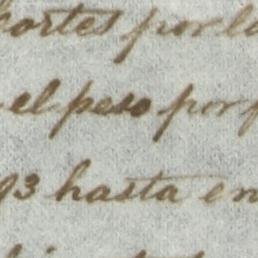 cortes por la
el peso por
93 hasta en